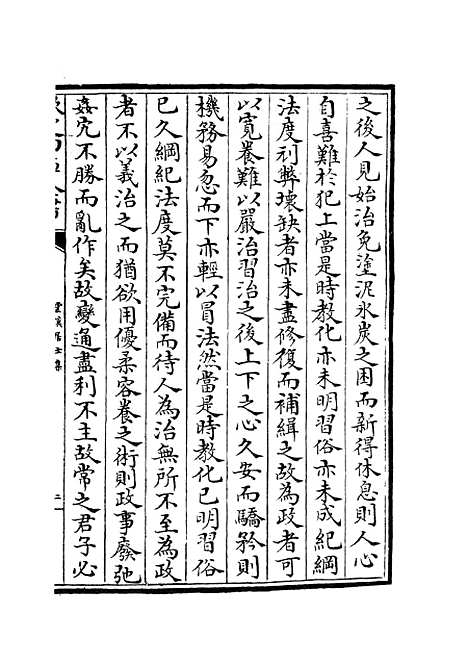 之後人見始治免塗泥氷炭之困而新得休息則人心
自喜難於犯上當是時教化亦未明習俗亦未成紀綱
法度刓弊壞缺者亦未盡修復而補緝之故為政者可
以寛養難以嚴治習治之後上下之心久安而驕矜則
機務易忽而下亦輕以冒法然當是時教化已明習俗
已久綱紀法度莫不完備而待人為治無所不至為政
者不以義治之而猶欲用優柔容養之術則政事廢弛
姦宄不勝而亂作矣故變通盡利不主故常之君子必
雲溪居士集